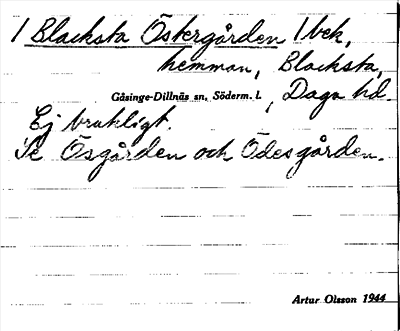 1 Blacksta Östergården 1 bek,
hemman, Blacksta,
Gåsinge-Dillnäs sn, Söderm. l. , Daga hd.
Ej brukligt.
Se Ösgården och Ödesgården.
Artur Olsson 1944